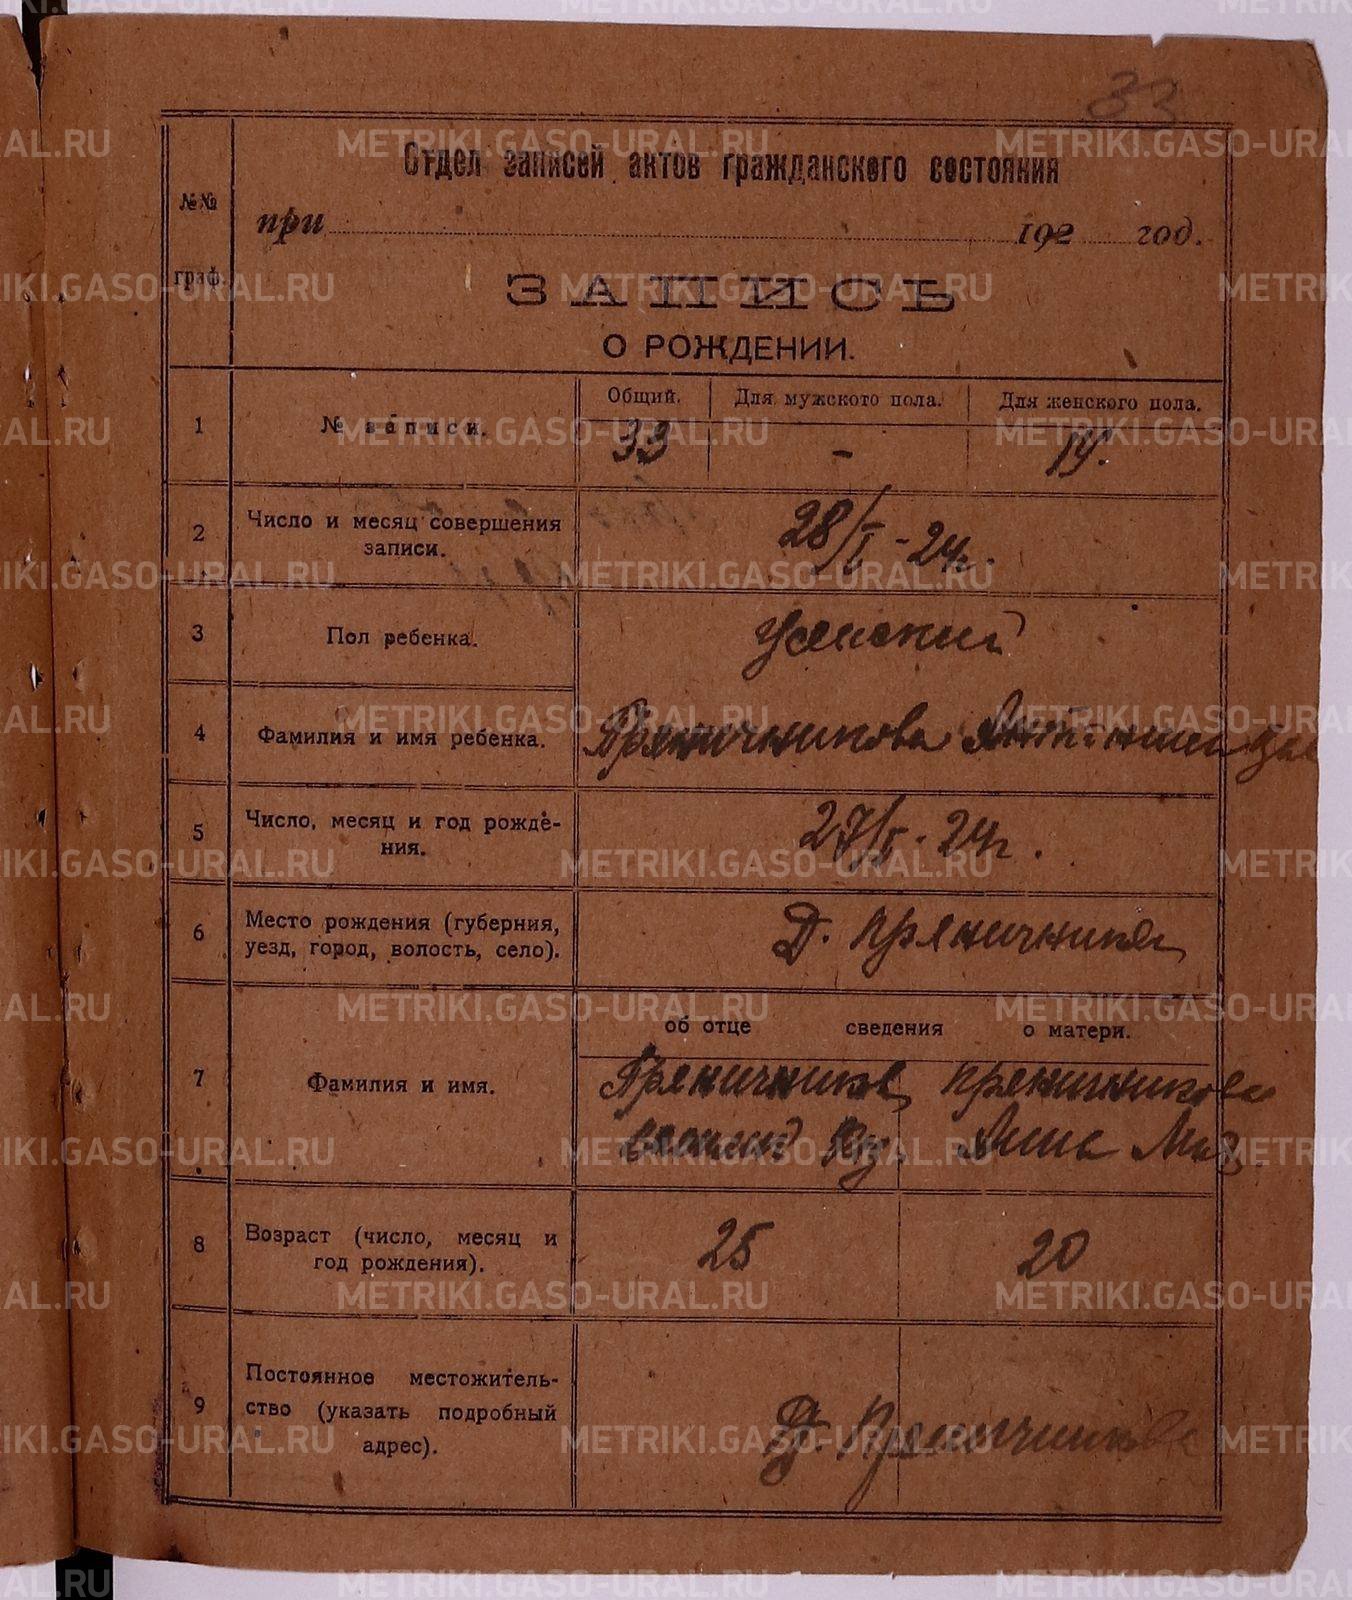 33
Отдел записей актов гражданского состояния
№№ граф.
при 192 год.
ЗАПИСЬ
О РОЖДЕНИИ.
Общий. Для мужского пола. Для женского пола.
1 № записи. 33 - 14.
2 Число и месяц совершения
записи. 28/I - 24 г.
3 Пол ребенка. женский
4 Фамилия и имя ребенка. Пряничникова Антонина
5 Число, месяц и год рожде-
ния. 27/I - 24 г.
6 Место рождения (губерния,
уезд, город, волость, село). Д. Пряничникова
об отце сведения о матери.
7 Фамилия и имя. Пряничников Пряничникова
Леонид Куз. Анна
8 Возраст (число, месяц и
год рождения). 25 20
9 Постоянное местожитель-
ство (указать подробный
адрес). Д. Пряничникова
METRIKI.GASO-URAL.RU